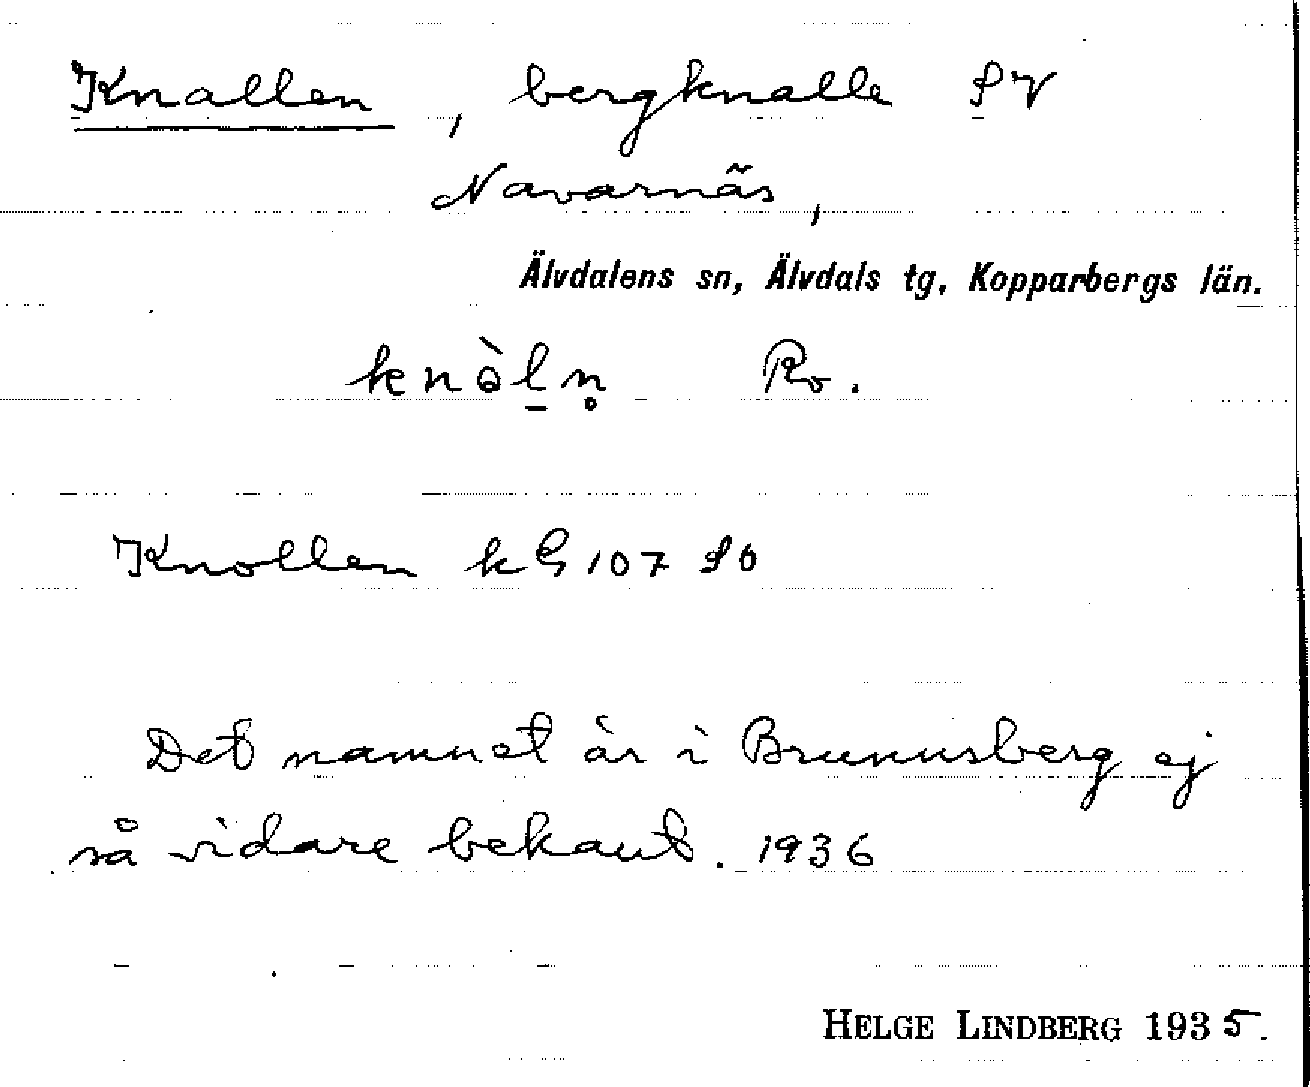 Knallen, bergknalle SV
Navarnäs,
Älvdalens sn, Älvdals tg, Kopparbergs län.
knòl̲n̥ Ro.
Knollen kG 107 SO
Det namnet är i Brunnsberg ej
så vidare bekant. 1936
HELGE LINDBERG 1935.